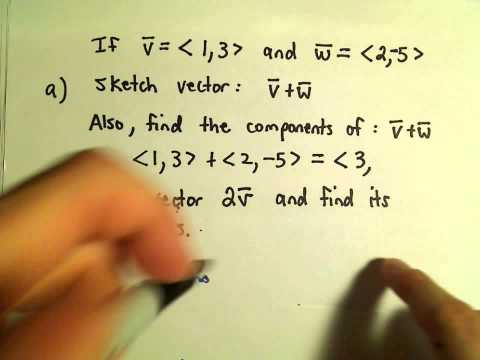 If v̅ = < 1, 3 > and w̅ = < 2, -5 >
a) Sketch vector: v̅ + w̅
Also, find the components of: v̅ + w̅
< 1, 3 > + < 2, -5 > = < 3,
2v̅ and find its